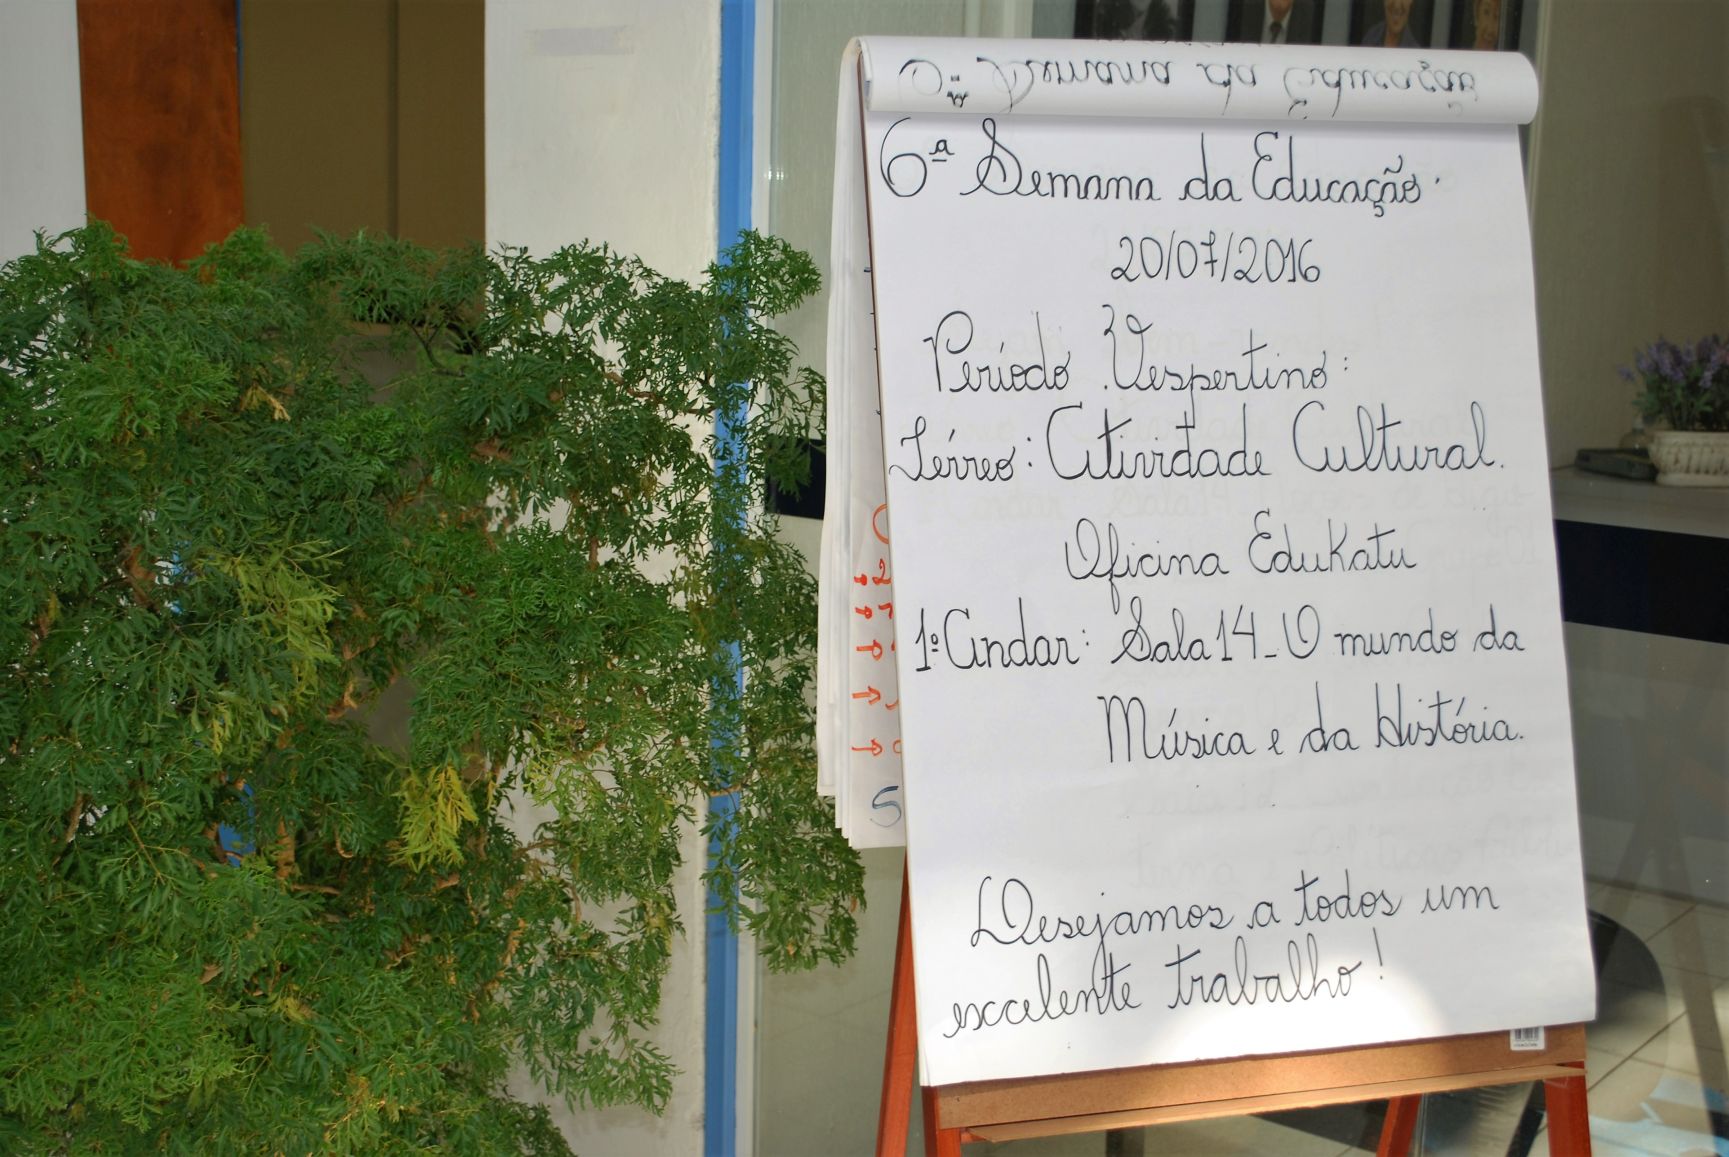 6ª Semana da Educação
6ª Semana da Educação.
20/07/2016
Período Vespertino:
Térreo: Atividade Cultural.
Oficina EduKatu
1º Andar: Sala 14 - O mundo da
Música e da História.
Desejamos a todos um
excelente trabalho!